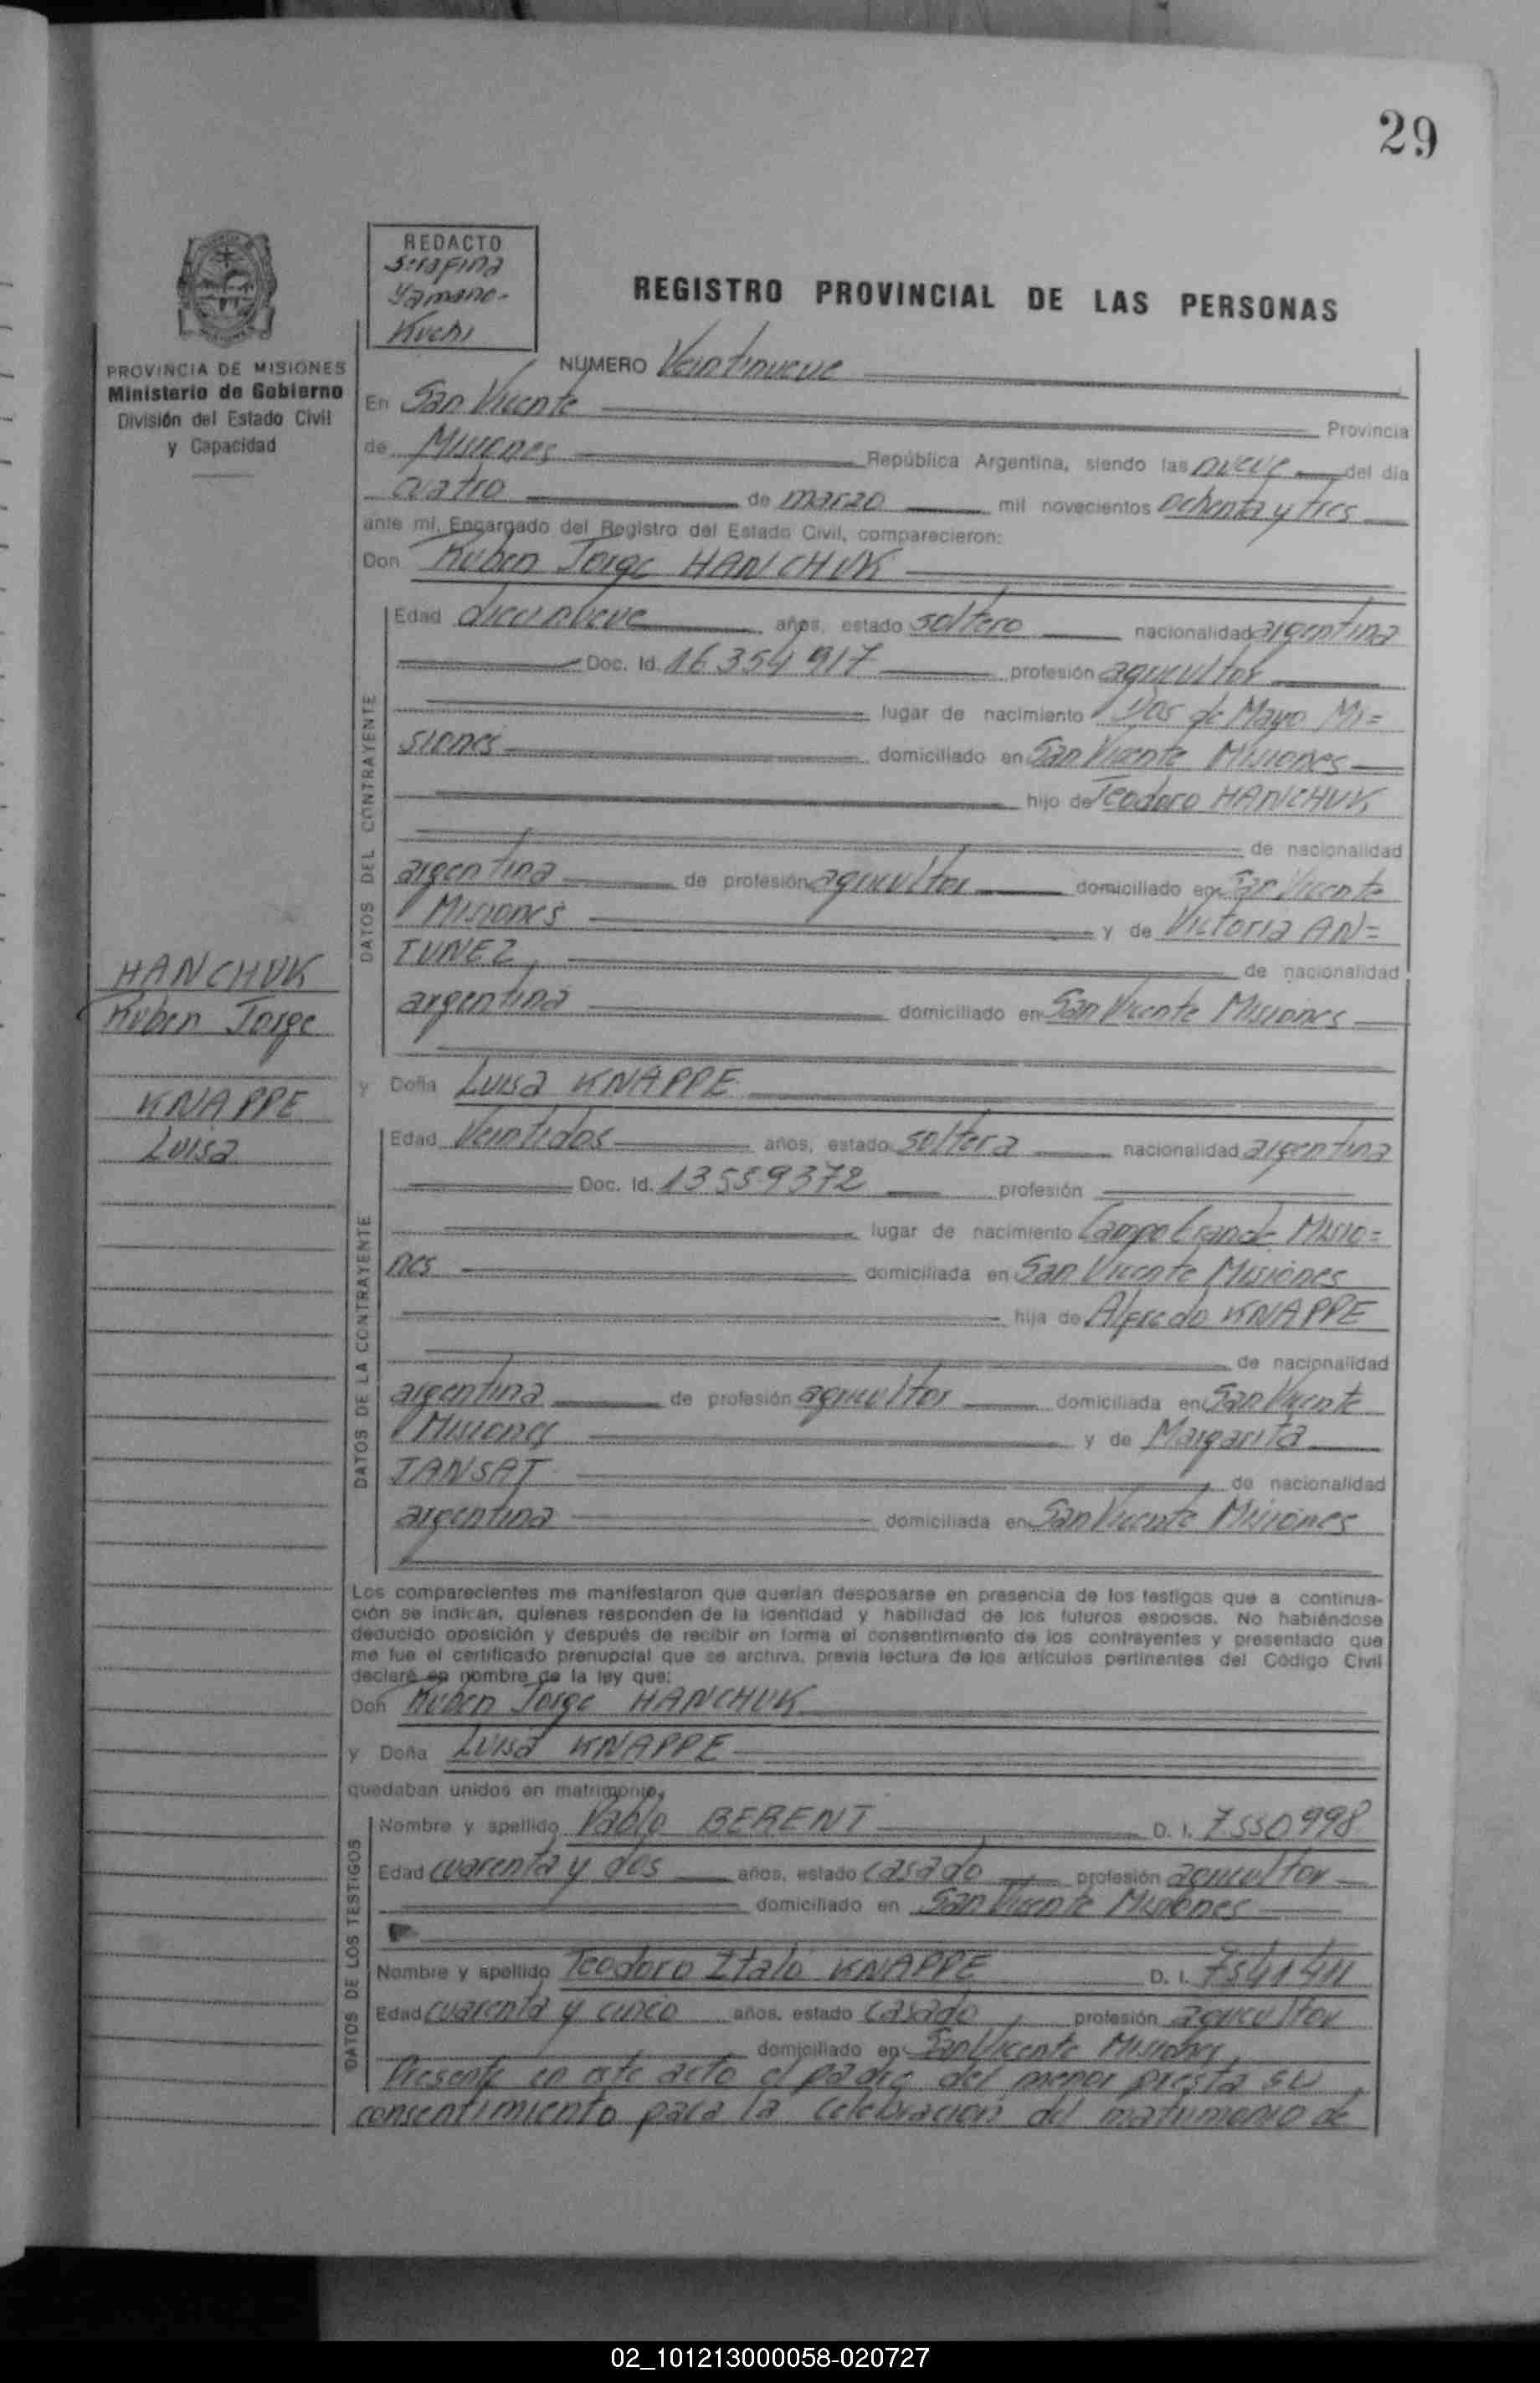 29
REDACTO
Serafina
Yamano-
Kuchi
REGISTRO PROVINCIAL DE LAS PERSONAS
PROVINCIA DE MISIONES
Ministerio de Gobierno
División del Estado Civil
y Capacidad
NUMERO Veintinueve
En San Vicente Provincia
de Misiones República Argentina, siendo las nueve del día
cuatro de marzo mil novecientos ochenta y tres
ante mí, Encargado del Registro del Estado Civil, comparecieron:
Don Ruben Jorge HANCHUK
DATOS DEL CONTRAYENTE
Edad diecinueve años, estado soltero nacionalidad argentina
Doc. Id. 16 354 917 profesión agricultor
lugar de nacimiento Dos de Mayo Mi=
siones domiciliado en San Vicente Misiones
hijo de Teodoro HANCHUK
de nacionalidad
argentina de profesión agricultor domiciliado en San Vicente
Misiones y de Victoria AN=
TUNEZ, de nacionalidad
argentina domiciliado en San Vicente Misiones
HANCHUK
Ruben Jorge
KNAPPE
Luisa
y Doña Luisa KNAPPE
DATOS DE LA CONTRAYENTE
Edad Veintidos años, estado soltera nacionalidad argentina
Doc. Id. 13559372 profesión
lugar de nacimiento Campo Grande Misio=
nes domiciliada en San Vicente Misiones
hija de Alfredo KNAPPE
de nacionalidad
argentina de profesión agricultor domiciliada en San Vicente
Misiones y de Margarita
JANSAT de nacionalidad
argentina domiciliada en San Vicente Misiones
Los comparecientes me manifestaron que querían desposarse en presencia de los testigos que a continua-
ción se indican, quienes responden de la identidad y habilidad de los futuros esposos. No habiéndose
deducido oposición y después de recibir en forma el consentimiento de los contrayentes y presentado que
me fue el certificado prenupcial que se archiva, previa lectura de los artículos pertinentes del Código Civil
declaré en nombre de la ley que:
Don Ruben Jorge HANCHUK
y Doña Luisa KNAPPE
quedaban unidos en matrimonio.
DATOS DE LOS TESTIGOS
Nombre y apellido Pablo BERENT D. I. 7550998
Edad cuarenta y dos años, estado casado profesión agricultor
domiciliado en San Vicente Misiones
Nombre y apellido Teodoro Italo KNAPPE D. I. 7541411
Edad cuarenta y cinco años, estado casado profesión agricultor
domiciliado en San Vicente Misiones
Presente en este acto el padre del menor presta su
consentimiento para la celebración del matrimonio de
02_101213000058-020727